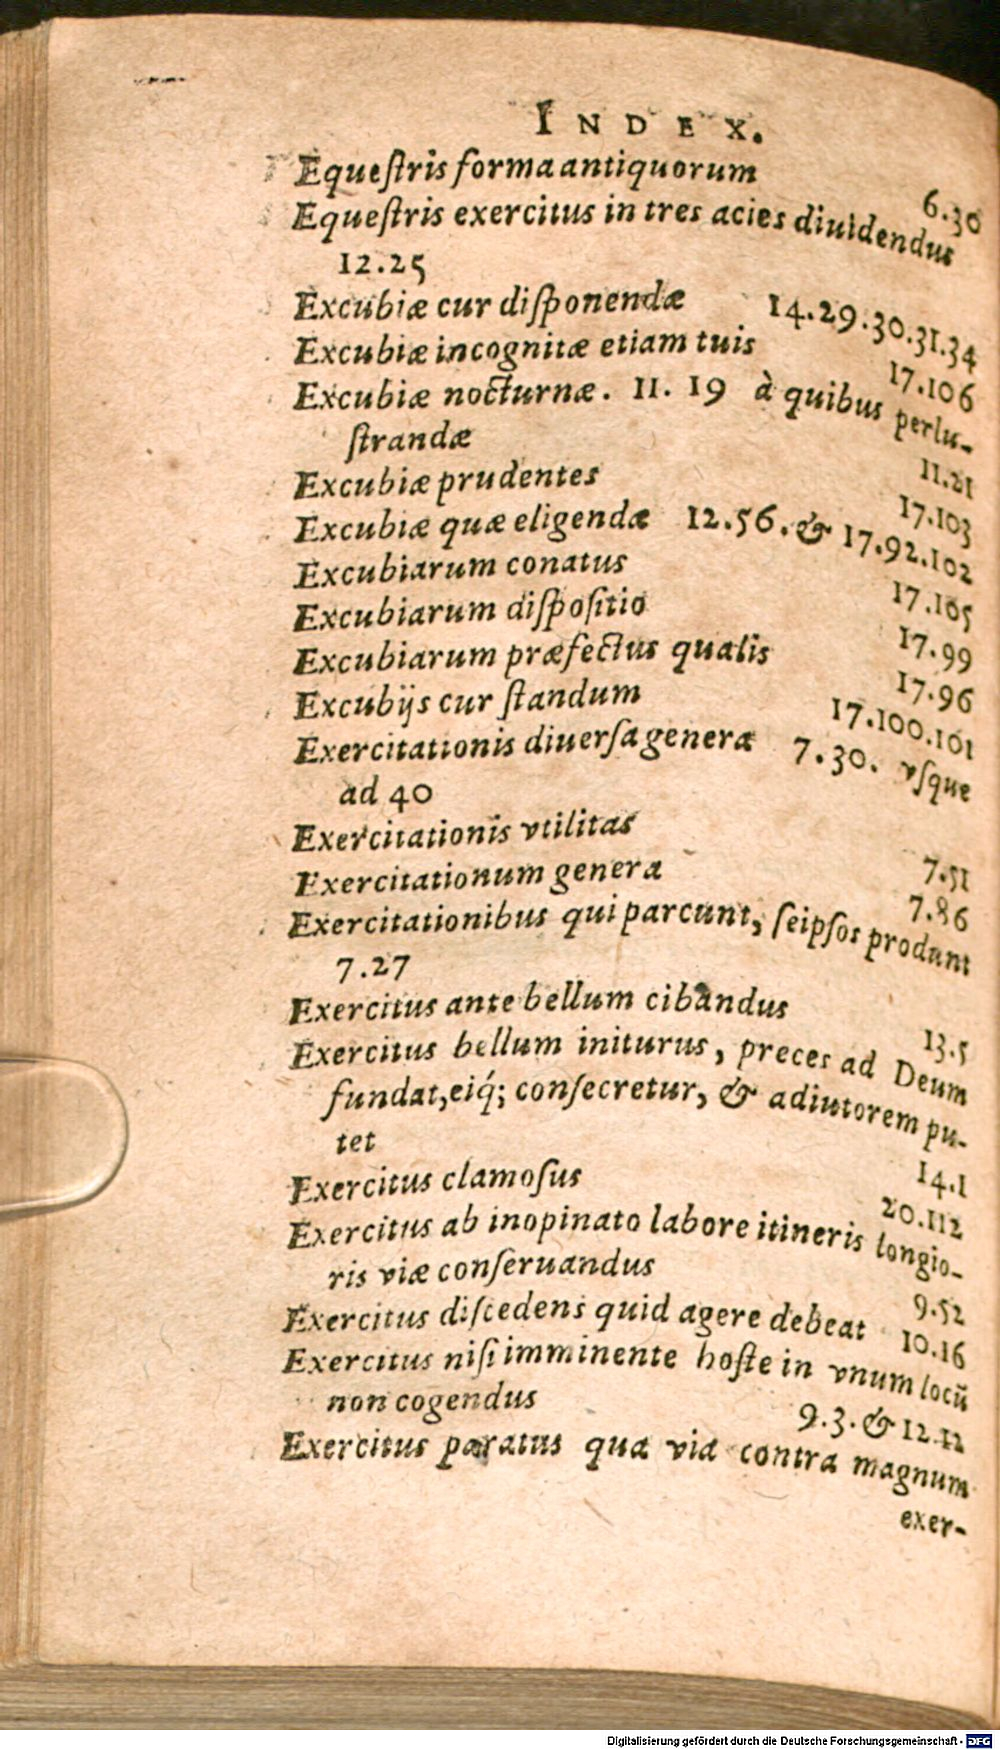 INDEX.
Equeſtris forma antiquorum 6.30
Equeſtris exercitus in tres acies diuidendus
12.25
Excubiæ cur diſponendæ 14.29.30.31.34
Excubiæ incognitæ etiam tuis 17.106
Excubiæ nocturnæ. 11. 19 à quibus perlu-
ſtrandæ 11.21
Excubiæ prudentes 17.103
Excubiæ quæ eligendæ 12.56. & 17.92.102
Excubiarum conatus 17.105
Excubiarum diſpoſitio 17.99
Excubiarum præfectus qualis 17.96
Excubijs cur ſtandum 17.100.101
Exercitationis diuerſa genera 7.30. vſque
ad 40
Exercitationis vtilitas 7.51
Exercitationum genera 7.86
Exercitationibus qui parcunt, ſeipſos produnt
7.27
Exercitus ante bellum cibandus 13.5
Exercitus bellum initurus, preces ad Deum
fundat, eiq́; conſecretur, & adiutorem pu-
tet 14.1
Exercitus clamoſus 20.112
Exercitus ab inopinato labore itineris longio-
ris viæ conſeruandus 9.52
Exercitus diſcedens quid agere debeat 10.16
Exercitus niſi imminente hoſte in vnum locū
non cogendus 9.3. & 12.12
Exercitus paratus qua via contra magnum
exer-
Digitalisierung gefördert durch die Deutsche Forschungsgemeinschaft - DFG